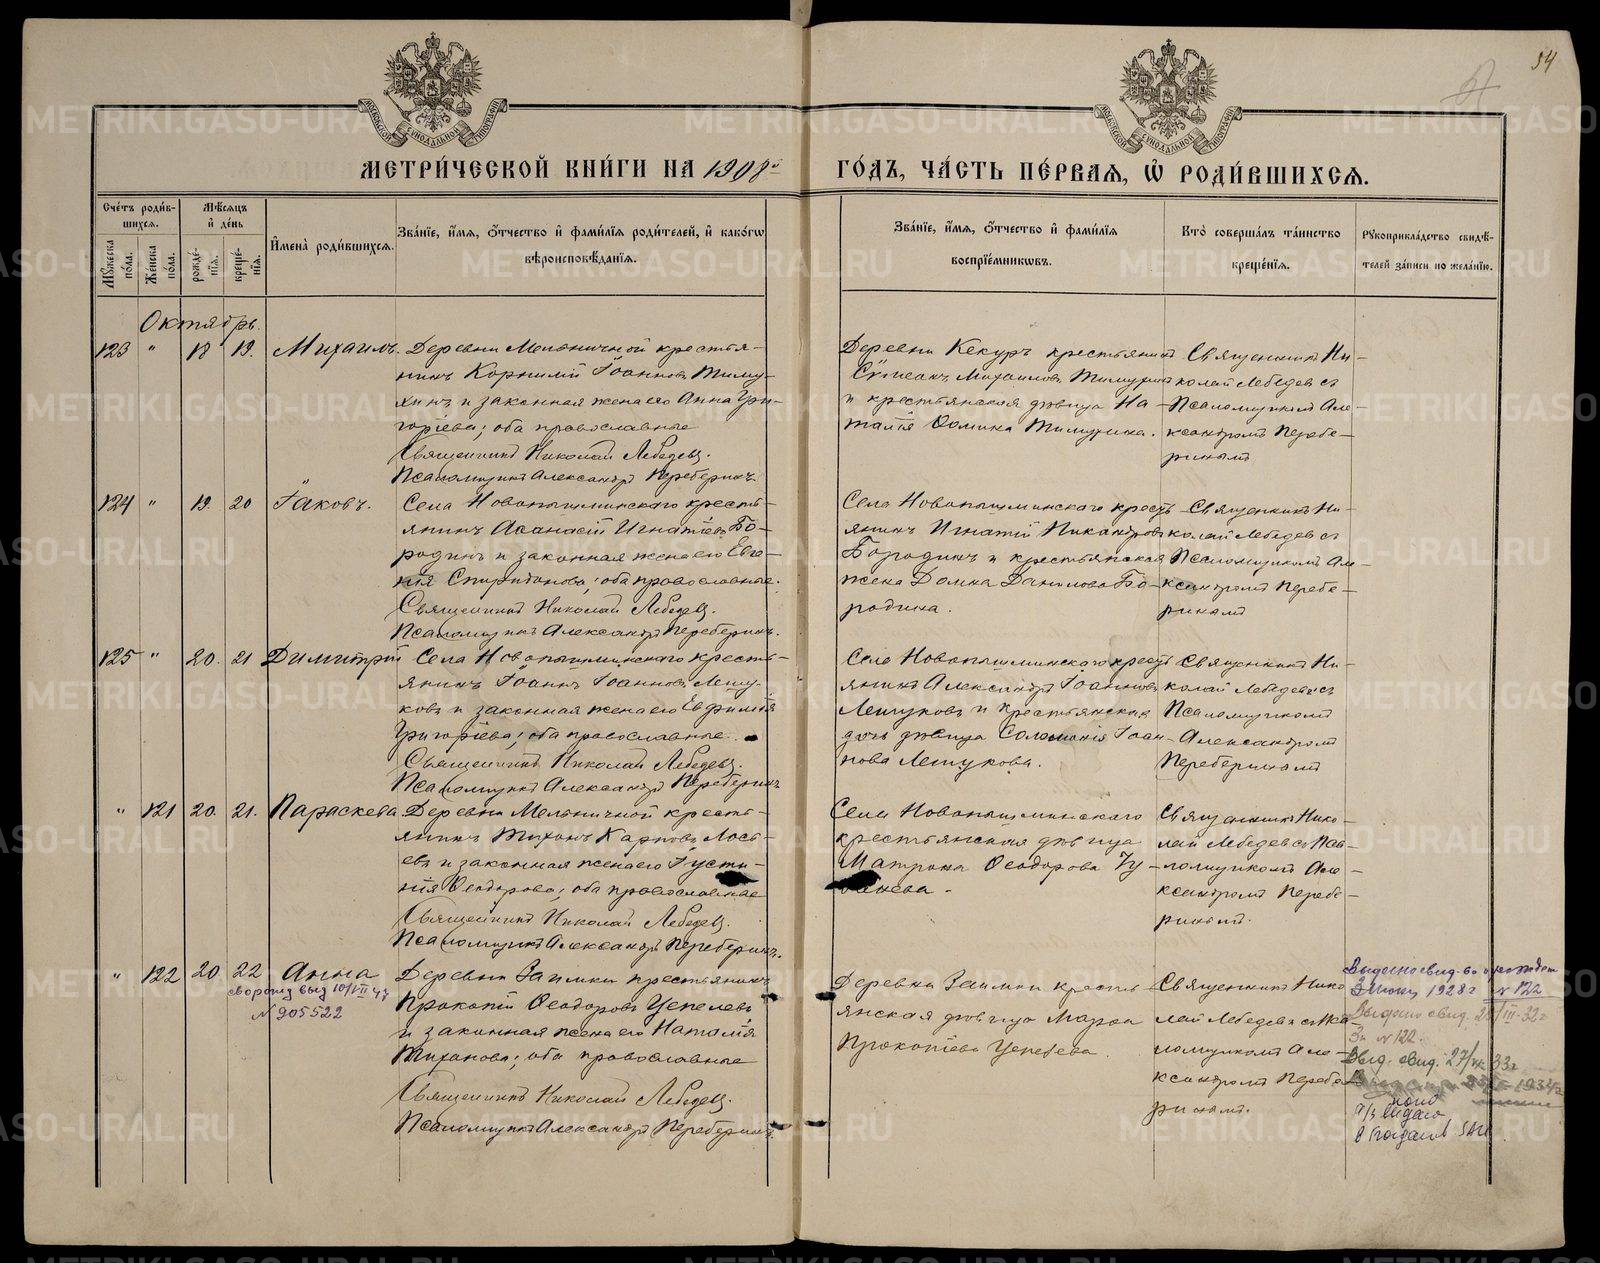 54
МЕТРИ́ЧЕСКОЙ КНИ́ГИ НА 1908й
ГО́ДЪ, ЧА́СТЬ ПЕ́РВАЯ, Ѡ҆ РОДИ́ВШИХСЯ.
Сче́тъ роди́в-
шихся.
Му́жеска по́ла.
Же́нска по́ла.
Мѣ́сяцъ и҆ де́нь
рожде́-
нїя.
креще́-
нїя.
И҆мена̀ роди́вшихся.
Зва́нїе, и҆́мя, ѻ҆́тчество и҆ фами́лїя роди́телей, и҆ како́гѡ
вѣроисповѣ́данїя.
Зва́нїе, и҆́мя, ѻ҆́тчество и҆ фами́лїя
воспрїе́мникѡвъ.
Кто̀ соверша́лъ та́инство
креще́нїя.
Рꙋкоприкла́дство свидѣ́-
телей за́писи по жела́нїю.
Октябрь.
123 " 18 19. Михаилъ.
Деревни Мельничной крестья-
нинъ Корнилій Іоанновъ Тиму-
хинъ и законная жена его Анна Гри-
горіева; оба православные
Священникъ Николай Лебедевъ.
Псаломщикъ Александръ Переберинъ.
Деревни Кекуръ крестьянинъ
Михаиловъ
и крестьянская дѣвица На-
талія Ѳомина
Священникъ Ни-
колай Лебедевъ съ
Псаломщикомъ Але-
ксандромъ Перебе-
ринымъ
124 " 19. 20 Іаковъ.
Села Новопышминскаго кресть-
янинъ Аѳанасій Игнатіевъ Бо-
родинъ и законная жена его Евге-
нія Спиридонова; оба православные.
Священникъ Николай Лебедевъ.
Псаломщикъ Александръ Переберинъ.
Села Новопышминскаго кресть-
янинъ Игнатій Никандровъ
Бородинъ и крестьянская
жена Домна Данилова Бо-
родина.
Священникъ Ни-
колай Лебедевъ съ
Псаломщикомъ Але-
ксандромъ Перебе-
ринымъ
125 " 20. 21 Димитрій
Села Новопышминскаго кресть-
янинъ Іоаннъ Іоанновъ Лету-
ковъ и законная жена его Евфимія
Григоріева; оба православные.
Священникъ Николай Лебедевъ.
Псаломщикъ Александръ Переберинъ
Села Новопышминскаго кресть-
янинъ Александръ Іоанновъ
Летуковъ и крестьянская
дочь дѣвица Соломонія Іоан-
нова Летукова.
Священникъ Ни-
колай Лебедевъ съ
Псаломщикомъ
Александромъ
Переберинымъ
" 121 20. 21. Параскева
Деревни Мельничной кресть-
янинъ Тихонъ Карповъ Лось-
евъ и законная жена его Іусти-
нія Ѳеодорова; оба православные
Священникъ Николай Лебедевъ.
Псаломщикъ Александръ Переберинъ.
Села Новопышминскаго
крестьянская дѣвица
Матрона Ѳеодорова
Священникъ Нико-
лай Лебедевъ съ Пса-
ломщикомъ Але-
ксандромъ Перебе-
ринымъ.
" 122 20 22 Анна
N 905522
Деревни Заимки крестьянинъ
Прокопій Ѳеодоровъ Цепелевъ
и законная жена его Наталія
Тихонова; оба православные
Священникъ Николай Лебедевъ.
Псаломщикъ Александръ Переберинъ.
Деревни Заимки кресть-
янская дѣвица Марѳа
Прокопіева Цепелева.
Священникъ Нико-
лай Лебедевъ съ Пса-
ломщикомъ Але-
ксандромъ Перебе-
ринымъ.
1928 г. N 122
N 122.
Выд. свид. 27/ 33 г